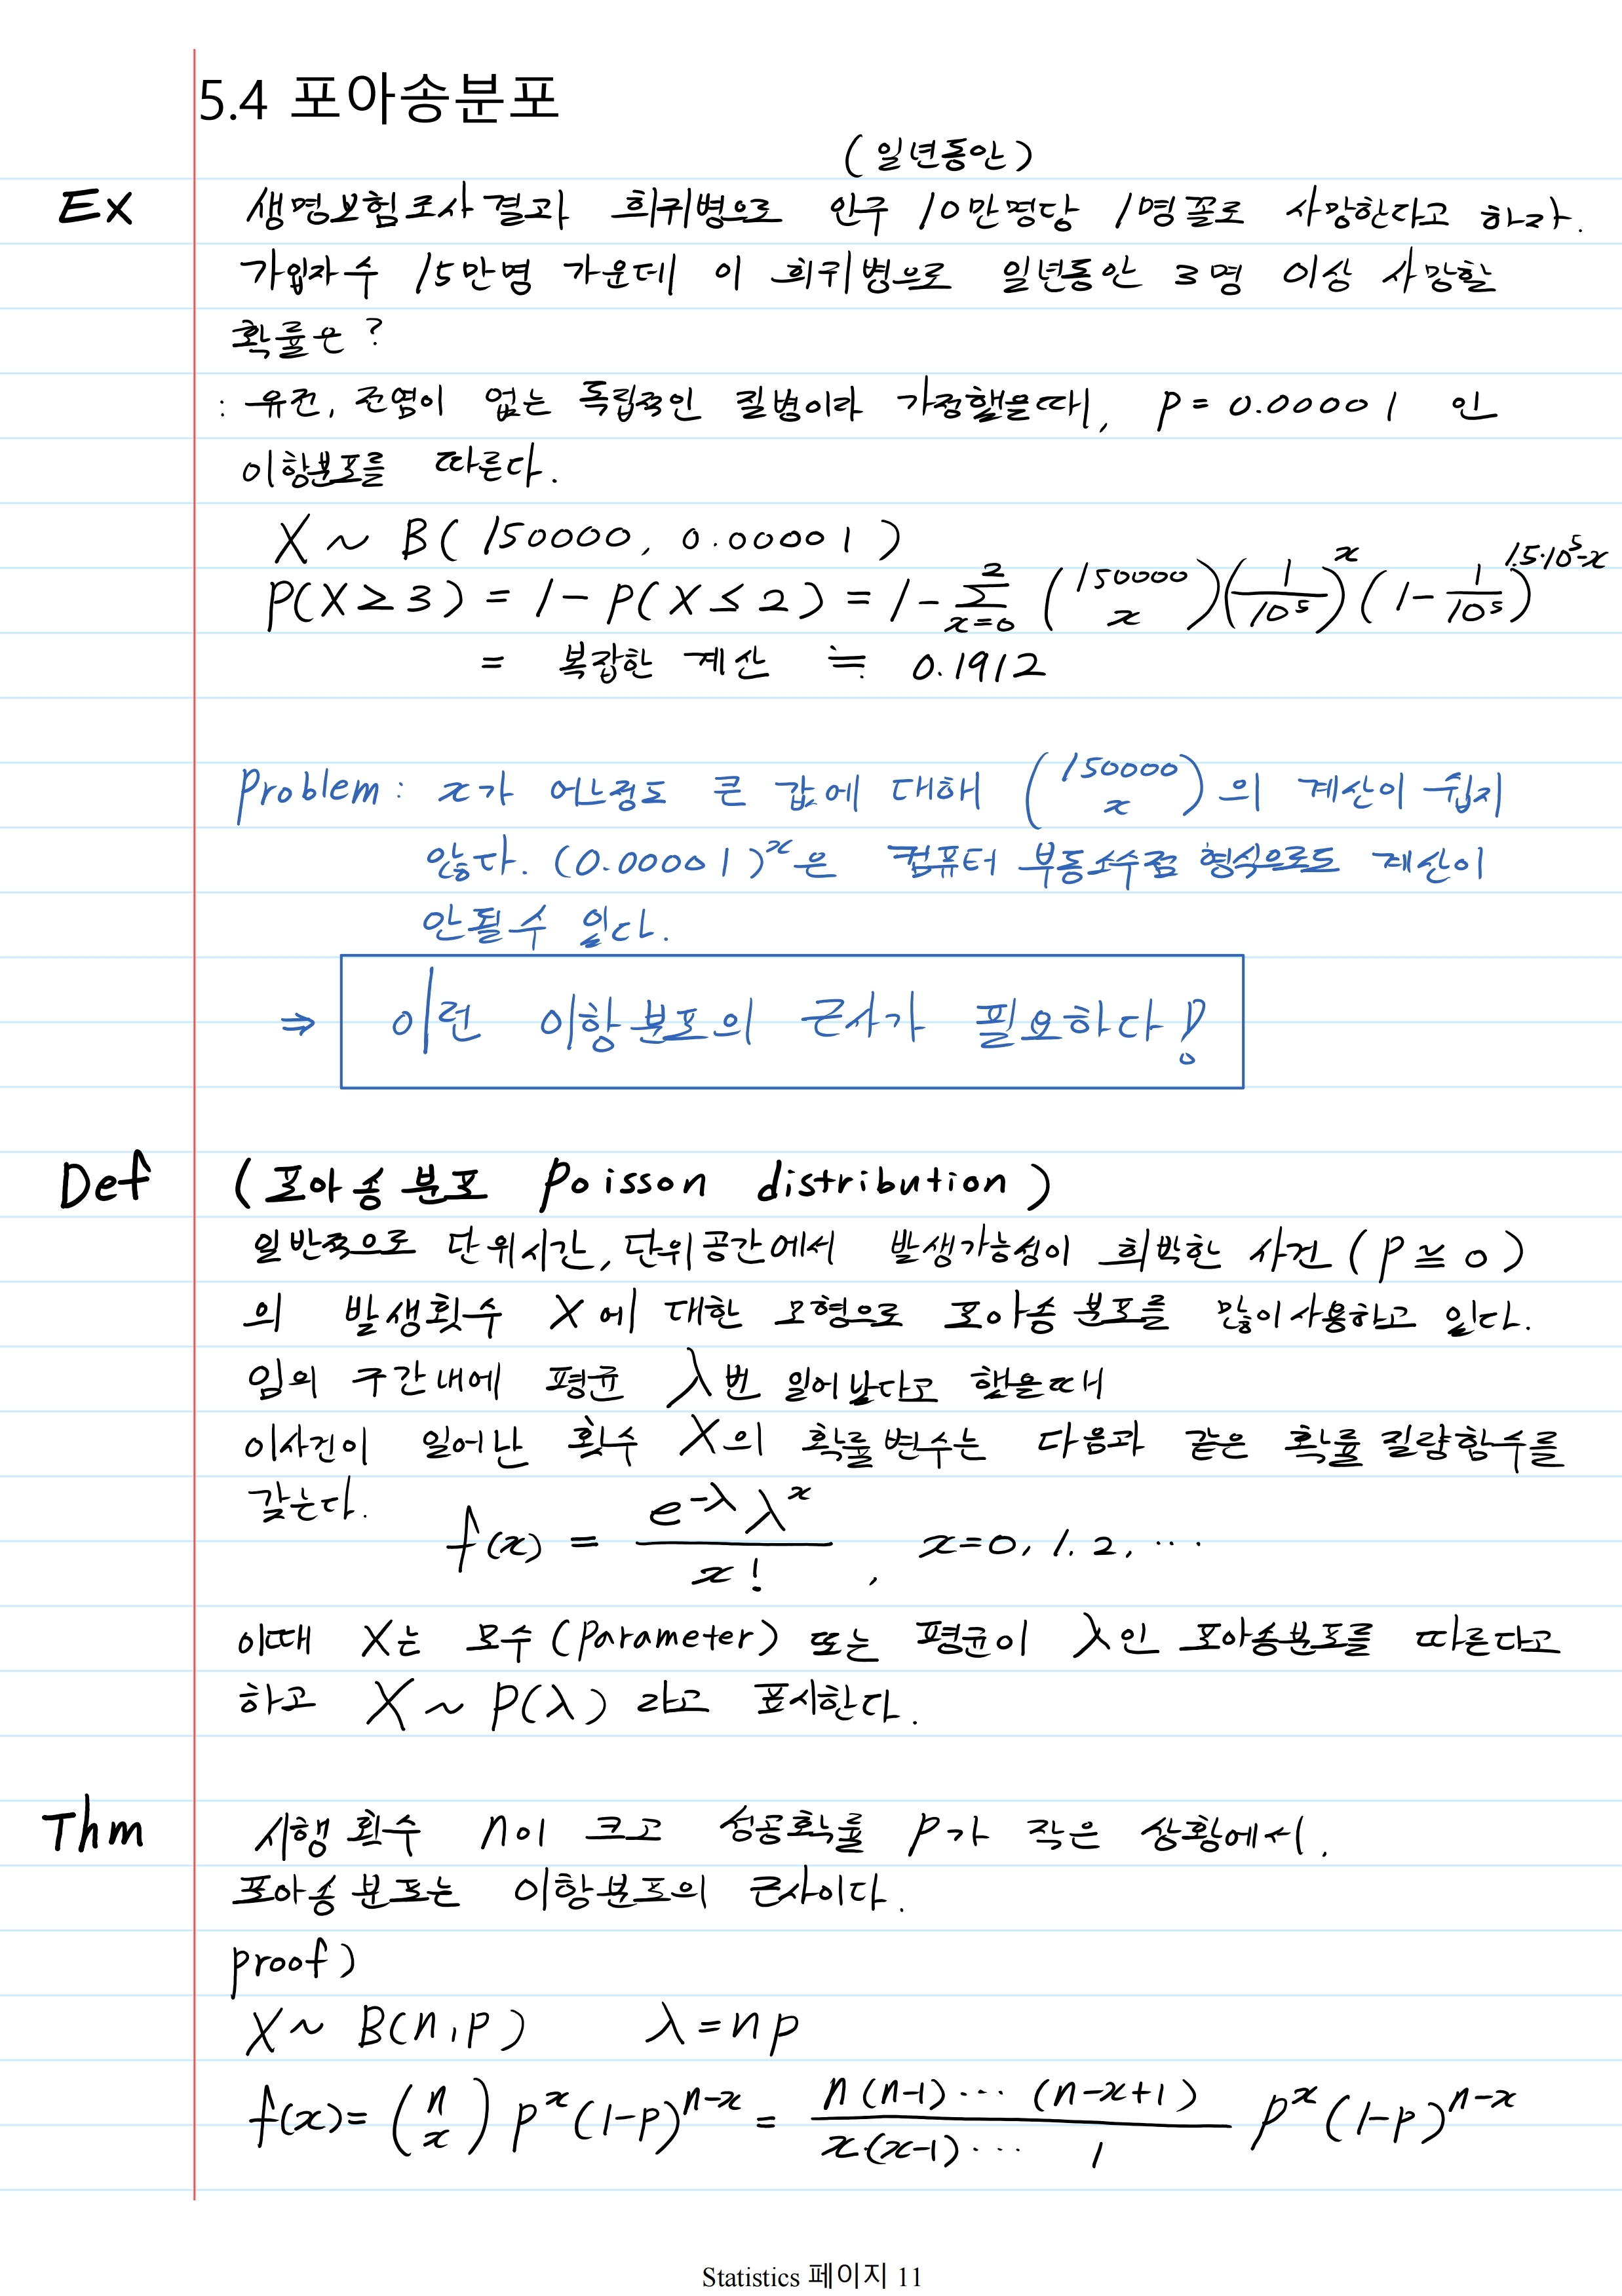 5.4 포아송분포
(일년동안)
Ex 생명보험조사결과 희귀병으로 인구 10만명당 1명꼴로 사망한다고 하자.
가입자수 15만명 가운데 이 희귀병으로 일년동안 3명 이상 사망할
확률은?
: 유전, 전염이 없는 독립적인 질병이라 가정했을때, p = 0.00001 인
이항분포를 따른다.
X ~ B( 150000, 0.00001 )
P(X ≥ 3) = 1 - P(X ≤ 2) = 1 - \sum_{x=0}^{2} \binom{150000}{x} (\frac{1}{10^5})^x (1 - \frac{1}{10^5})^{1.5·10^5-x}
= 복잡한 계산 ≒ 0.1912
Problem : x가 어느정도 큰 값에 대해 \binom{150000}{x}의 계산이 쉽지
않다. (0.00001)^x은 컴퓨터 부동소수점 형식으로도 계산이
안될수 있다.
⇒ 이런 이항분포의 근사가 필요하다!
Def (포아송 분포 Poisson distribution)
일반적으로 단위시간, 단위공간에서 발생가능성이 희박한 사건 (p ≅ 0)
의 발생횟수 X에 대한 모형으로 포아송 분포를 많이사용하고 있다.
임의 구간내에 평균 λ번 일어났다고 했을때
이사건이 일어난 횟수 X의 확률변수는 다음과 같은 확률질량함수를
갖는다.
f(x) = \frac{e^{-λ} λ^x}{x!}, x=0, 1, 2, ⋯
이때 X는 모수(parameter) 또는 평균이 λ인 포아송분포를 따른다고
하고 X ~ P(λ) 라고 표시한다.
Thm 시행 횟수 n이 크고 성공확률 p가 작은 상황에서,
포아송 분포는 이항분포의 근사이다.
proof)
X ~ B(n,p) λ = np
f(x) = \binom{n}{x} p^x (1-p)^{n-x} = \frac{n(n-1)⋯(n-x+1)}{x·(x-1)⋯1} p^x (1-p)^{n-x}
Statistics 페이지 11